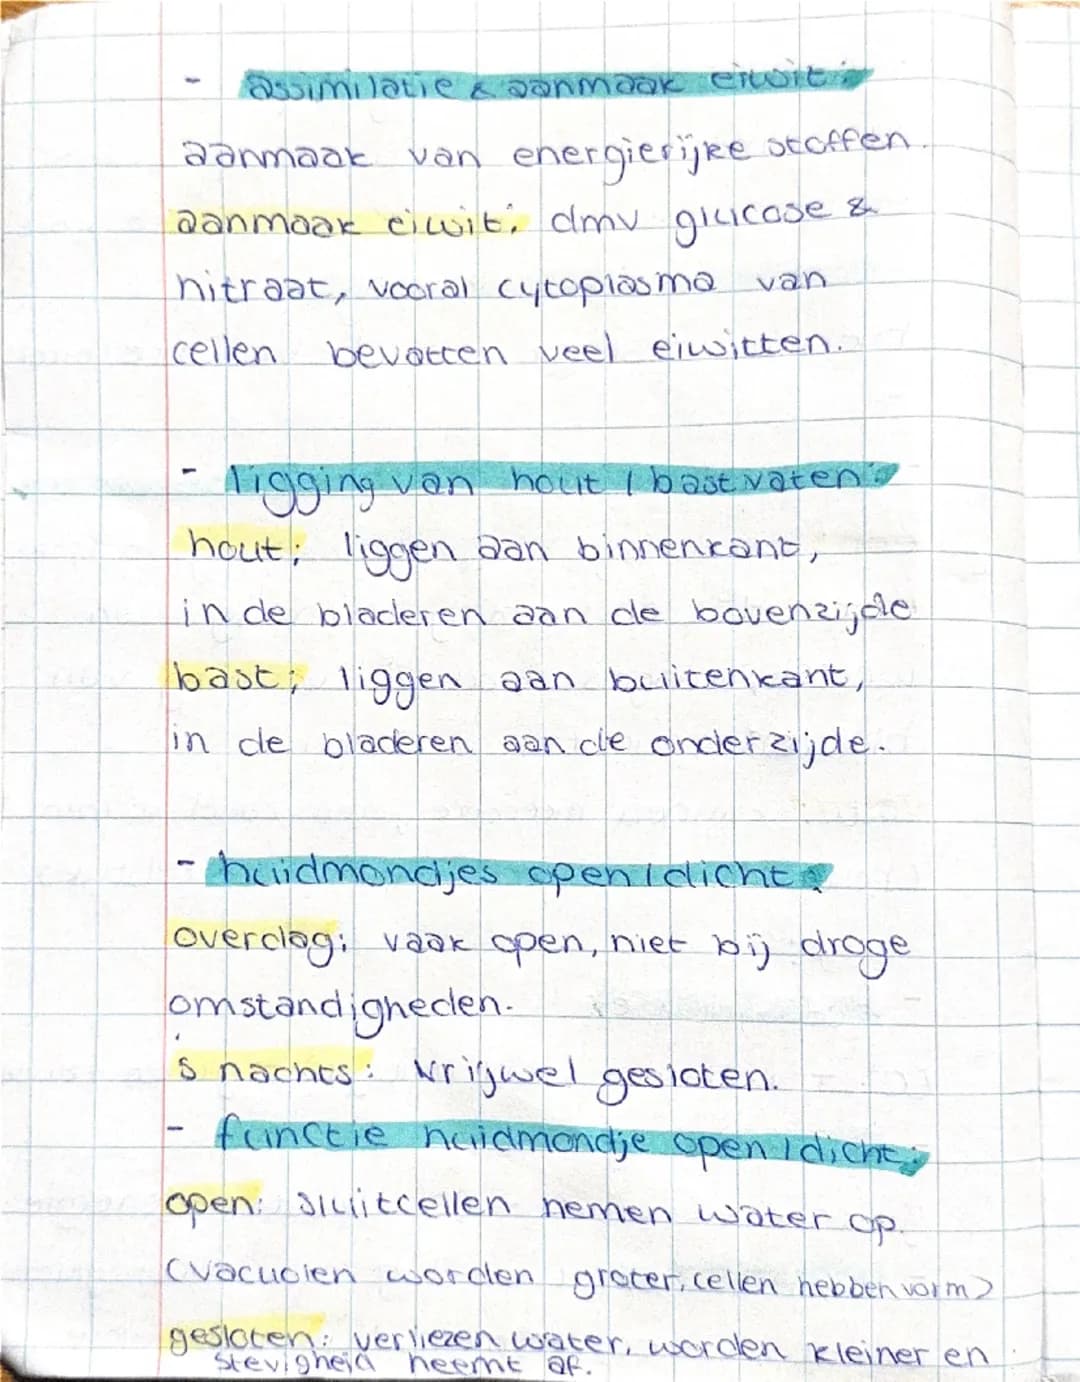 - assimilatie & aanmaak eiwit:
aanmaak van energierijke stoffen.
aanmaak eiwit: dmv glucose &
nitraat, vooral cytoplasma van
cellen bevatten veel eiwitten.
- ligging van hout / bastvaten:
hout: liggen aan binnenkant,
in de bladeren aan de bovenzijde
bast: liggen aan buitenkant,
in de bladeren aan de onderzijde.
- huidmondjes open/dicht:
overdag: vaak open, niet bij droge
omstandigheden.
's nachts: vrijwel gesloten.
- functie huidmondje open/dicht:
open: sluitcellen nemen water op.
(vacuolen worden groter, cellen hebben vorm)
gesloten: verliezen water, worden kleiner en
stevigheid neemt af.